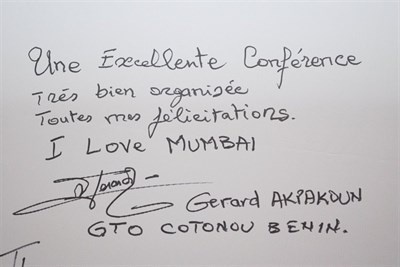 Une Excellente Conférence
Très bien organisée
Toutes mes félicitations.
I LOVE MUMBAI
Gerard AKPAKOUN
GTO COTONOU BENIN.